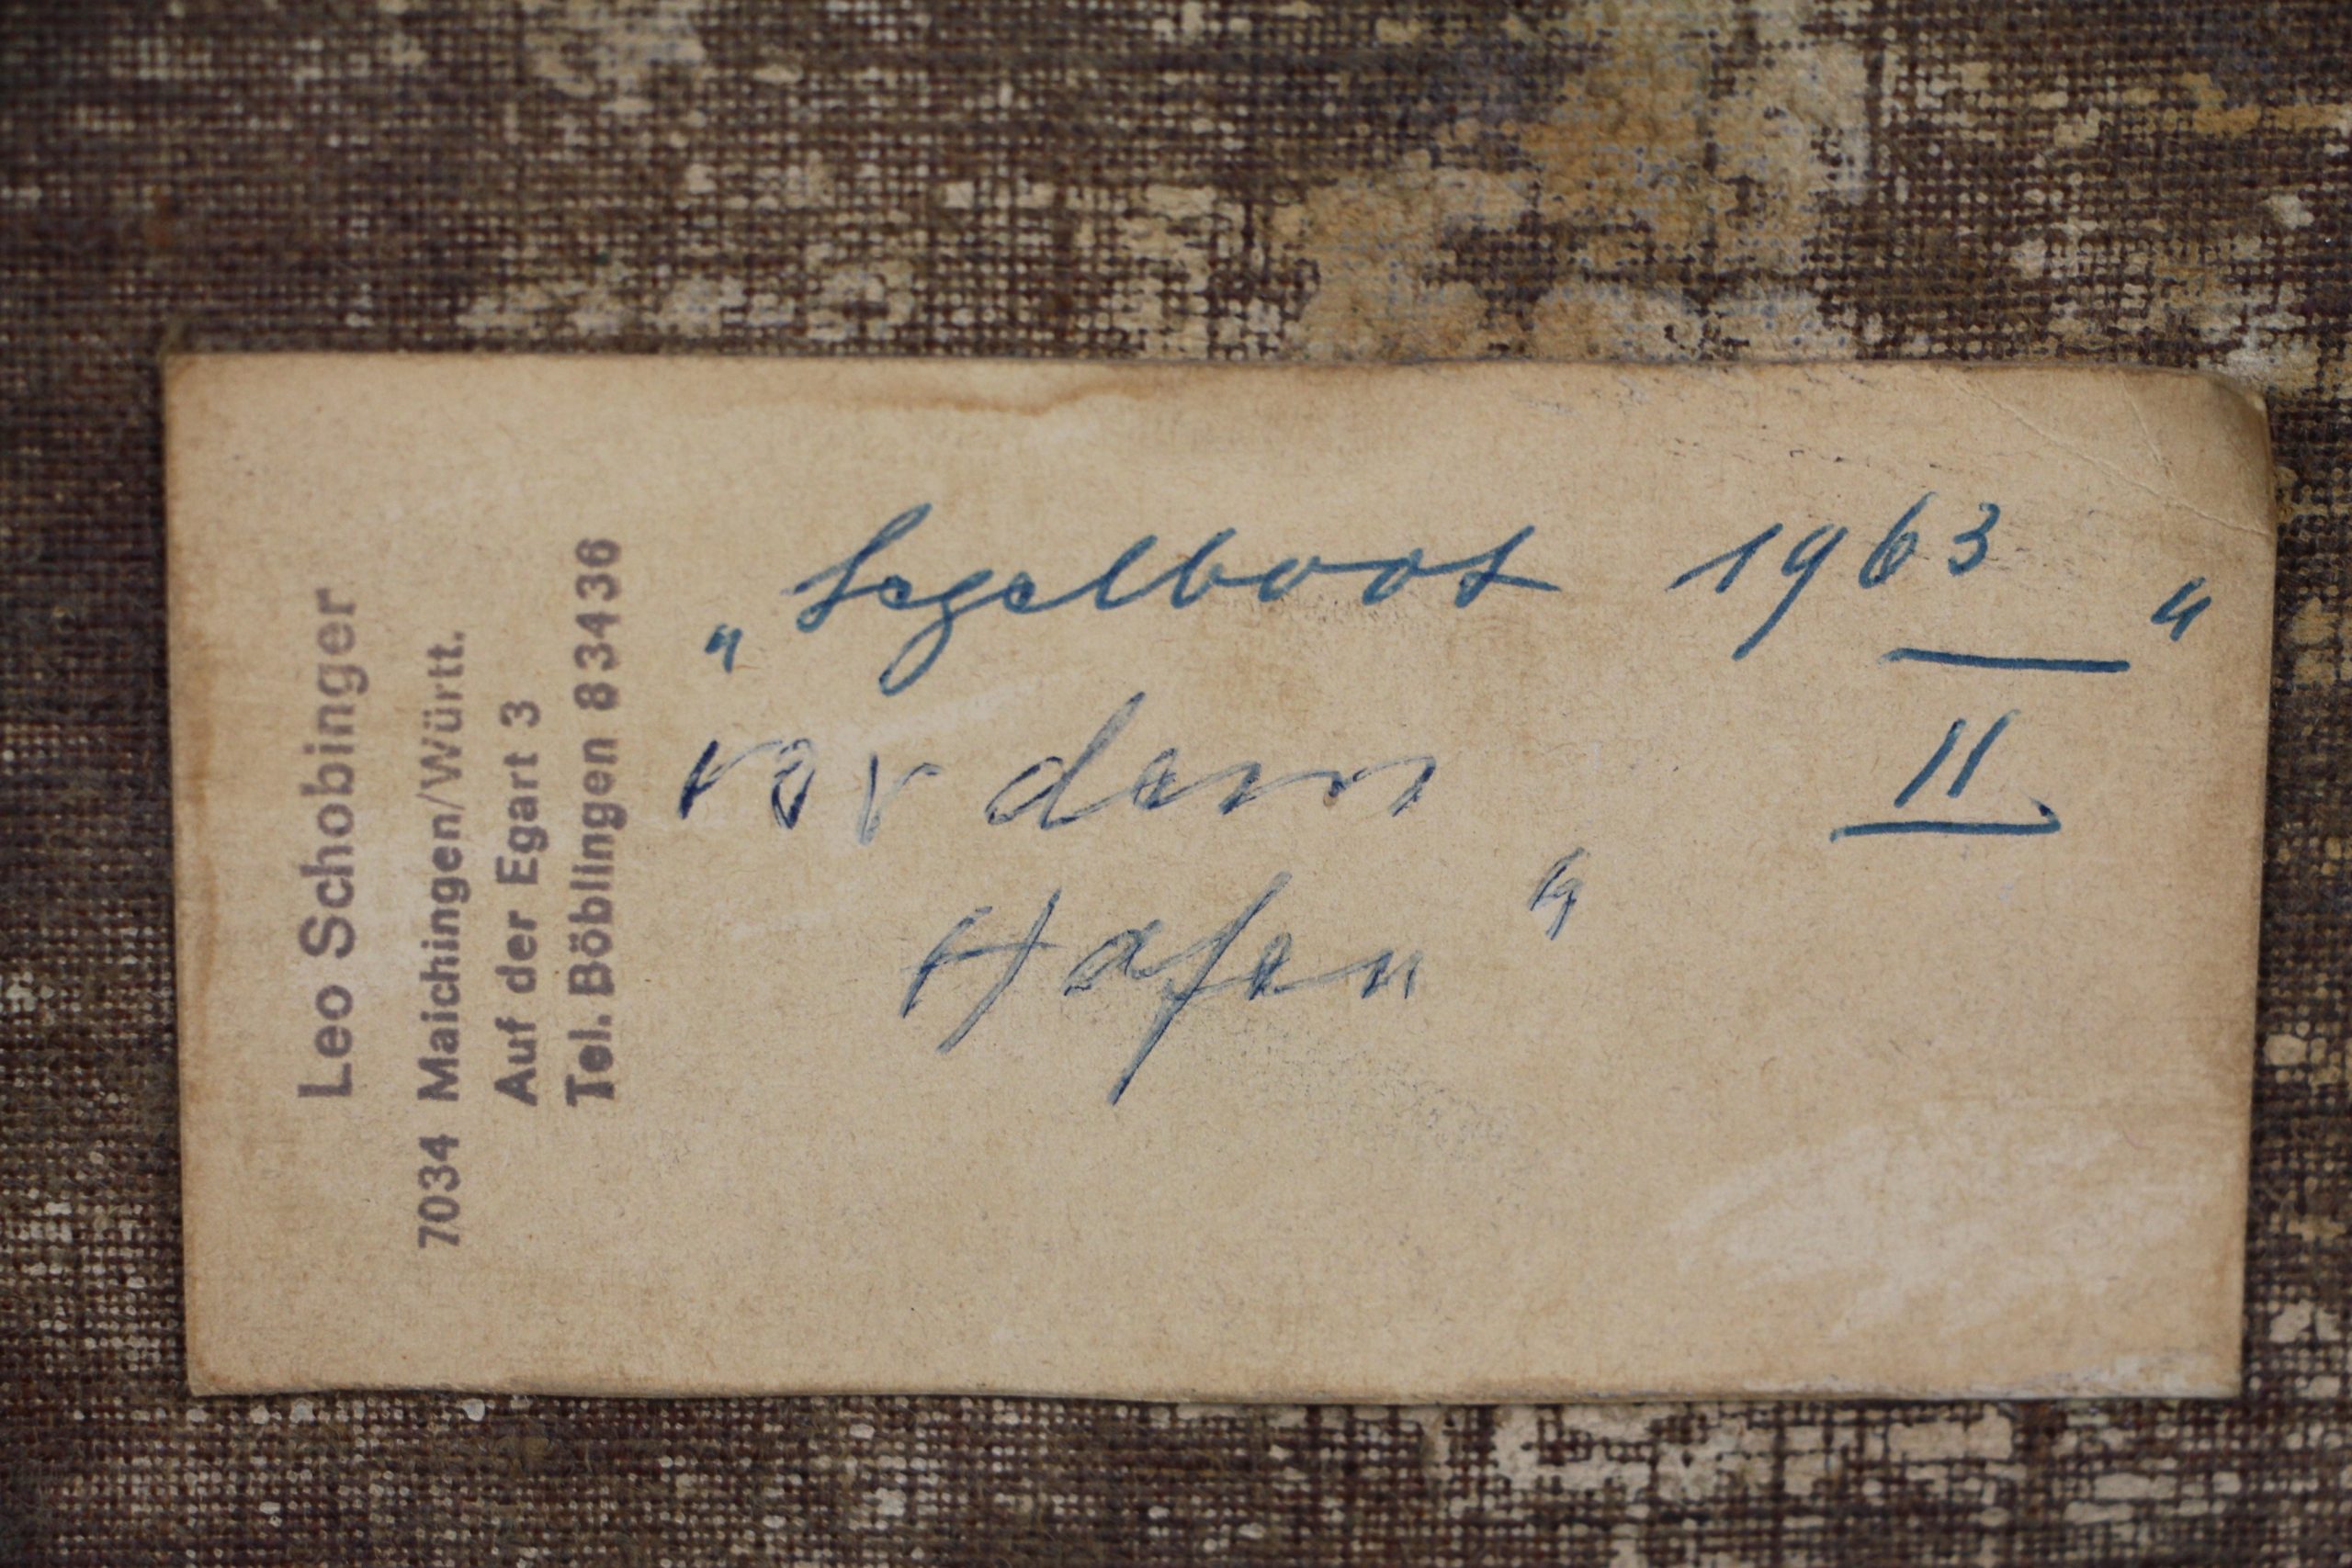 Leo Schobinger
7034 Maichingen/Württ.
Auf der Egart 3
Tel. Böblingen 8 34 36
„Segelboot 1963“
vor dem II
Hafen“